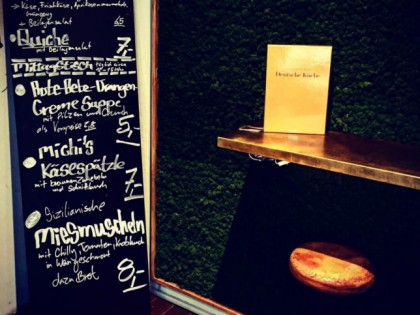 Käse, Frischkäse, Aprikosenmarmelade,
+ Beilagensalat 6,5
Quiche
mit Beilagensalat 7,-
Mittagstisch
Rote-Bete-Orangen-
Creme Suppe
mit Pilzen und
als Vorspeise 5,-
Michi's
Käsespätzle
mit braunen Zwiebeln
und Schnittlauch 7,-
Sizilianische
Miesmuscheln
mit Chilly, Tomaten, Knoblauch
in Wein geschmort
dazu Brot 8,-
Deutsche Küche